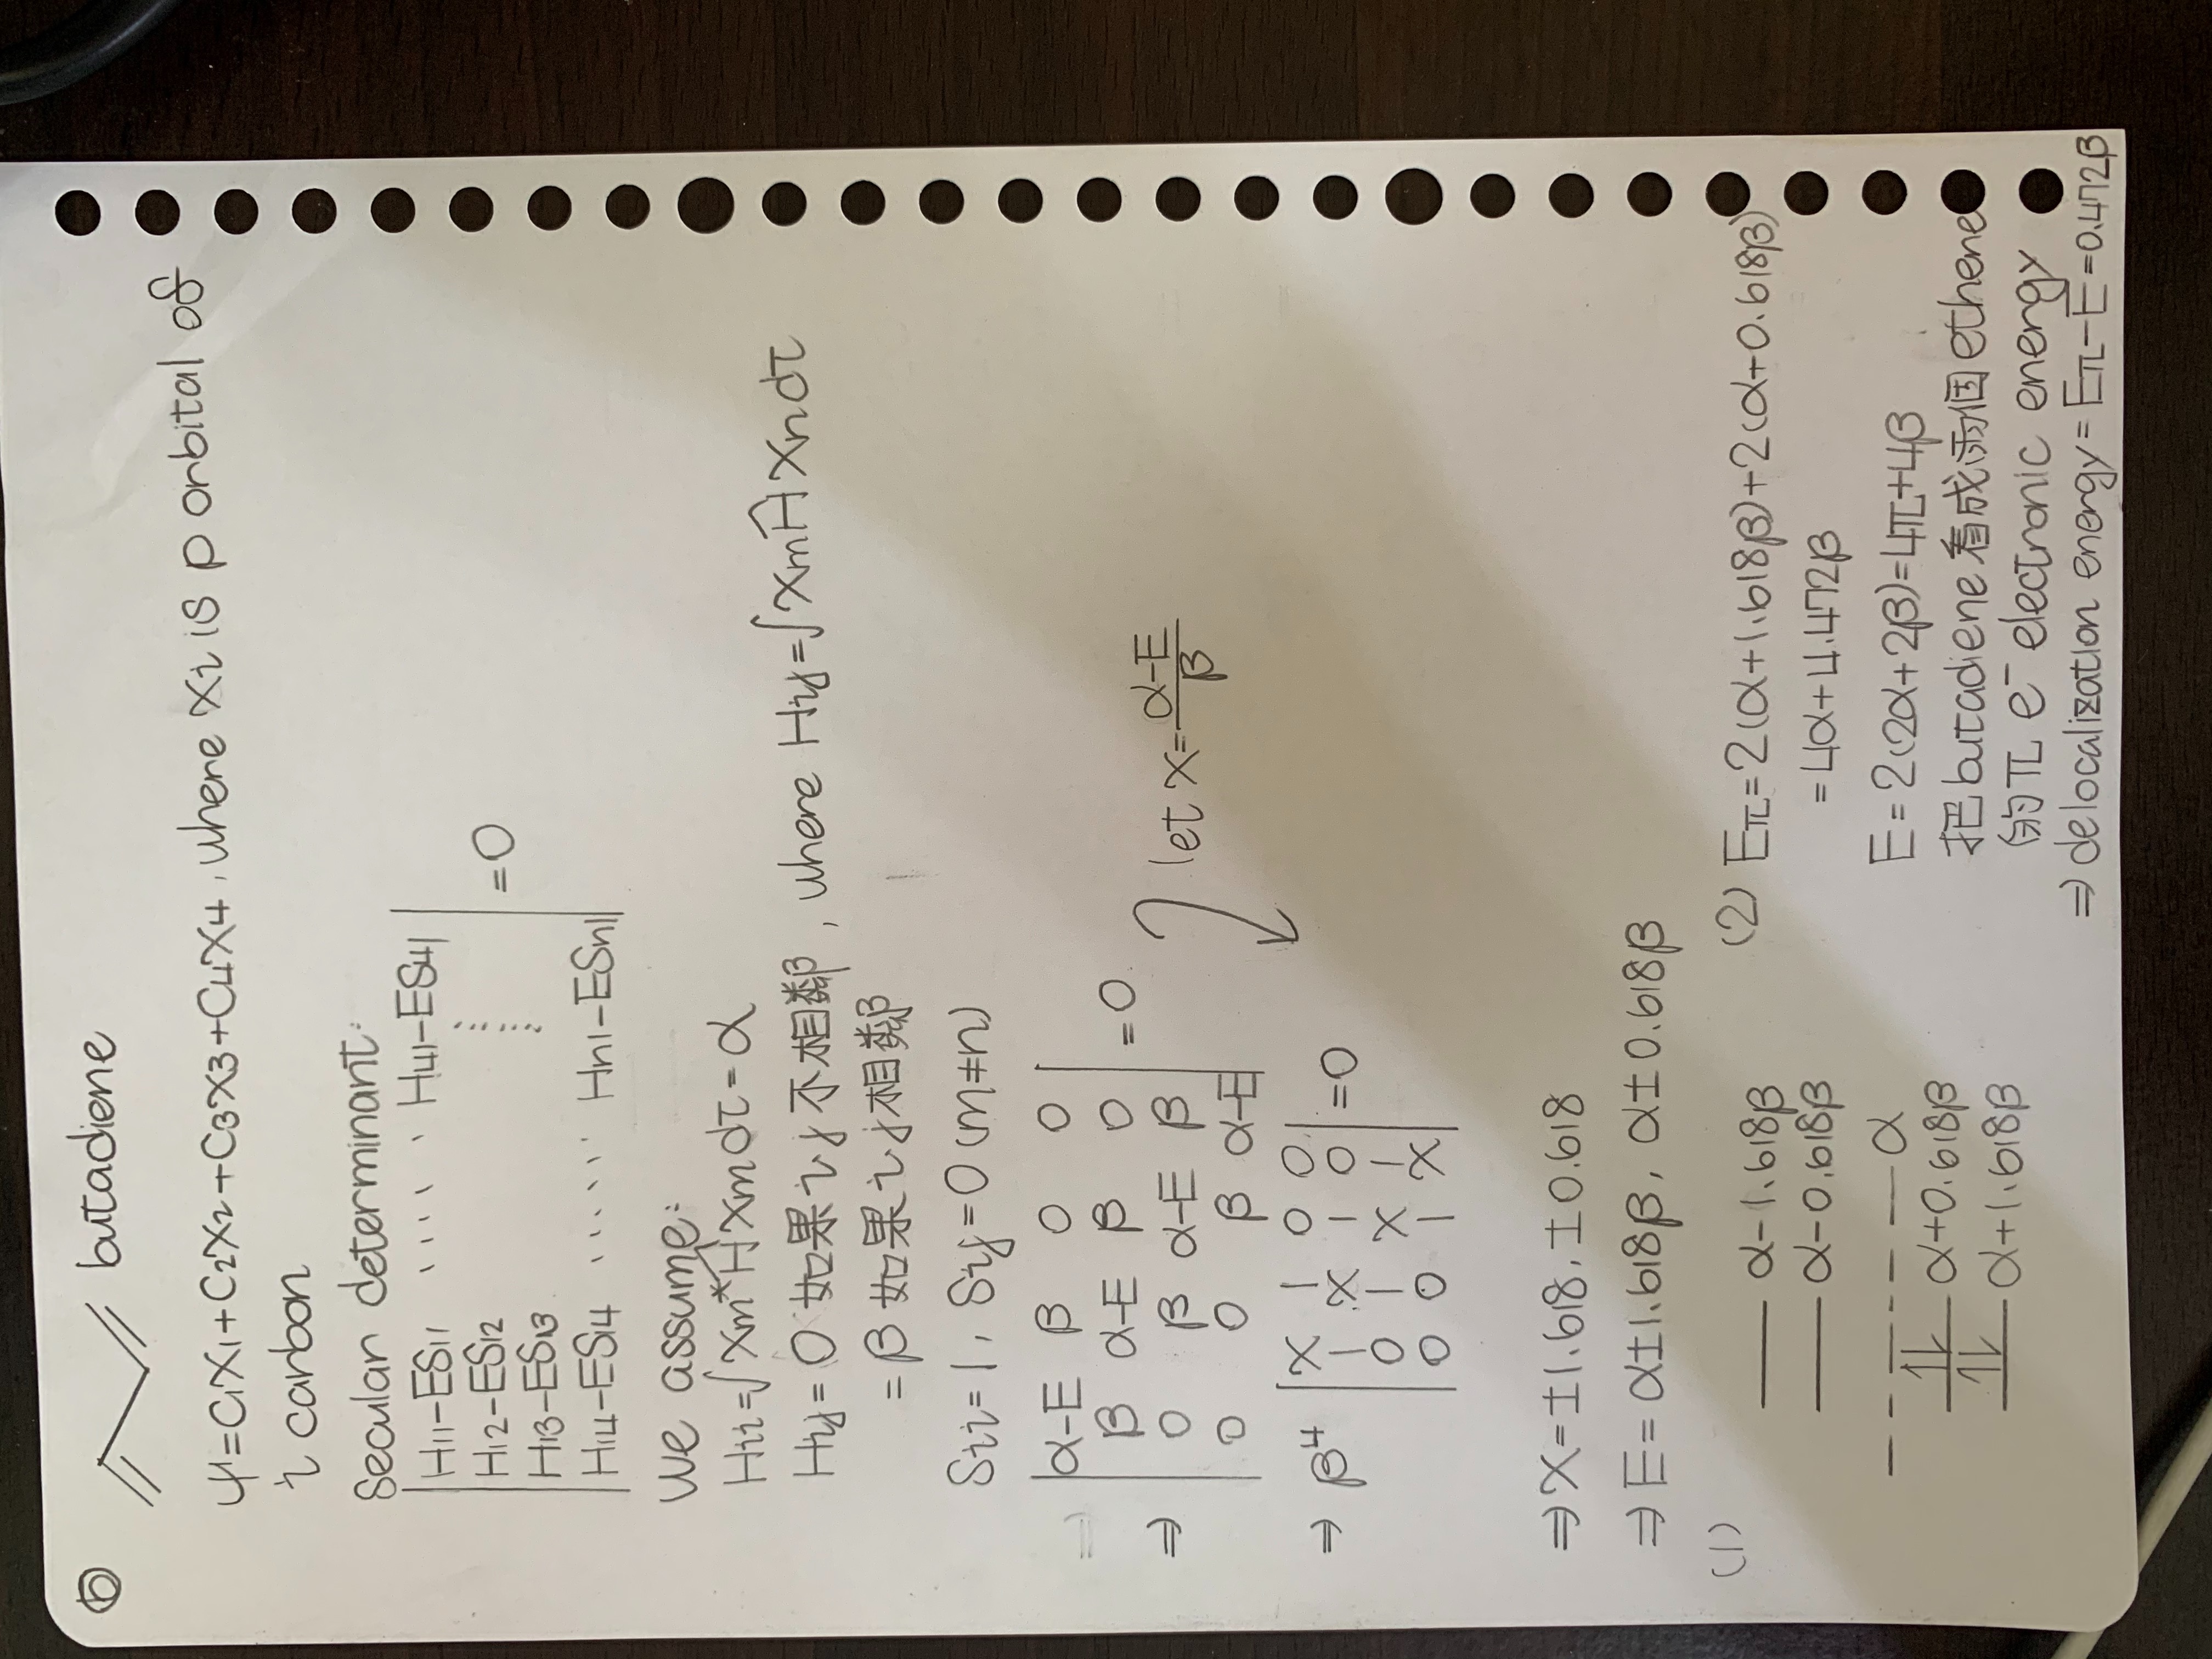 ⑥ butadiene
ψ=C1X1+C2X2+C3X3+C4X4, where Xi is p orbital of
i carbon
Secular determinant:
|H11-ES11 ····· H41-ES41|
|H12-ES12 ⋮|
|H13-ES13 ⋮| =0
|H14-ES14 ····· Hn1-ESn1|
We assume:
Hii=∫Xm*ĤXmdτ=α
Hij=0 如果i j不相鄰, where Hij=∫XmĤXndτ
=β 如果i j相鄰
Sii=1, Sij=0 (m≠n)
|α-E β 0 0|
|β α-E β 0| =0
⇒ |0 β α-E β| let x=(α-E)/β
|0 0 β α-E|
⇒ β⁴ |X 1 0 0|
|1 X 1 0| =0
|0 1 X 1|
|0 0 1 X|
⇒X=±1.618, ±0.618
⇒E=α±1.618β, α±0.618β
(1)
α-1.618β
α-0.618β
α
⥮ α+0.618β
⥮ α+1.618β
(2) Eπ=2(α+1.618β)+2(α+0.618β)
=4α+4.472β
E=2(2α+2β)=4π+4β
把butadiene看成兩個ethene
的π e⁻ electronic energy
⇒ delocalization energy=Eπ-E=0.472β